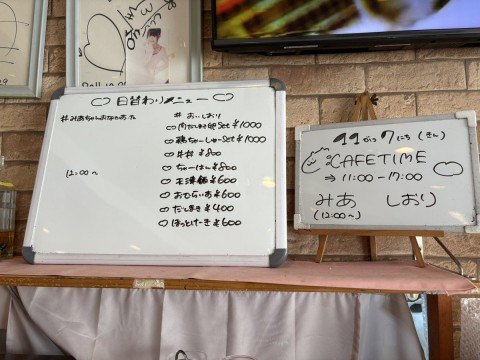 日替わりメニュー
#みあちゃんおなかすいた
12:00〜
# おいしおり
♡肉だしまき卵Set ¥1000
♡鶏ちゃーしゅーSet ¥1000
♡牛丼 ¥800
♡ちゃーはん ¥800
♡天津飯 ¥600
♡おむらいす ¥600
♡だしまき ¥400
♡ほっとけーき ¥600
11がつ7にち(きん)
CAFETIME
⇒ 11:00-17:00
みあ しおり
(12:00〜)